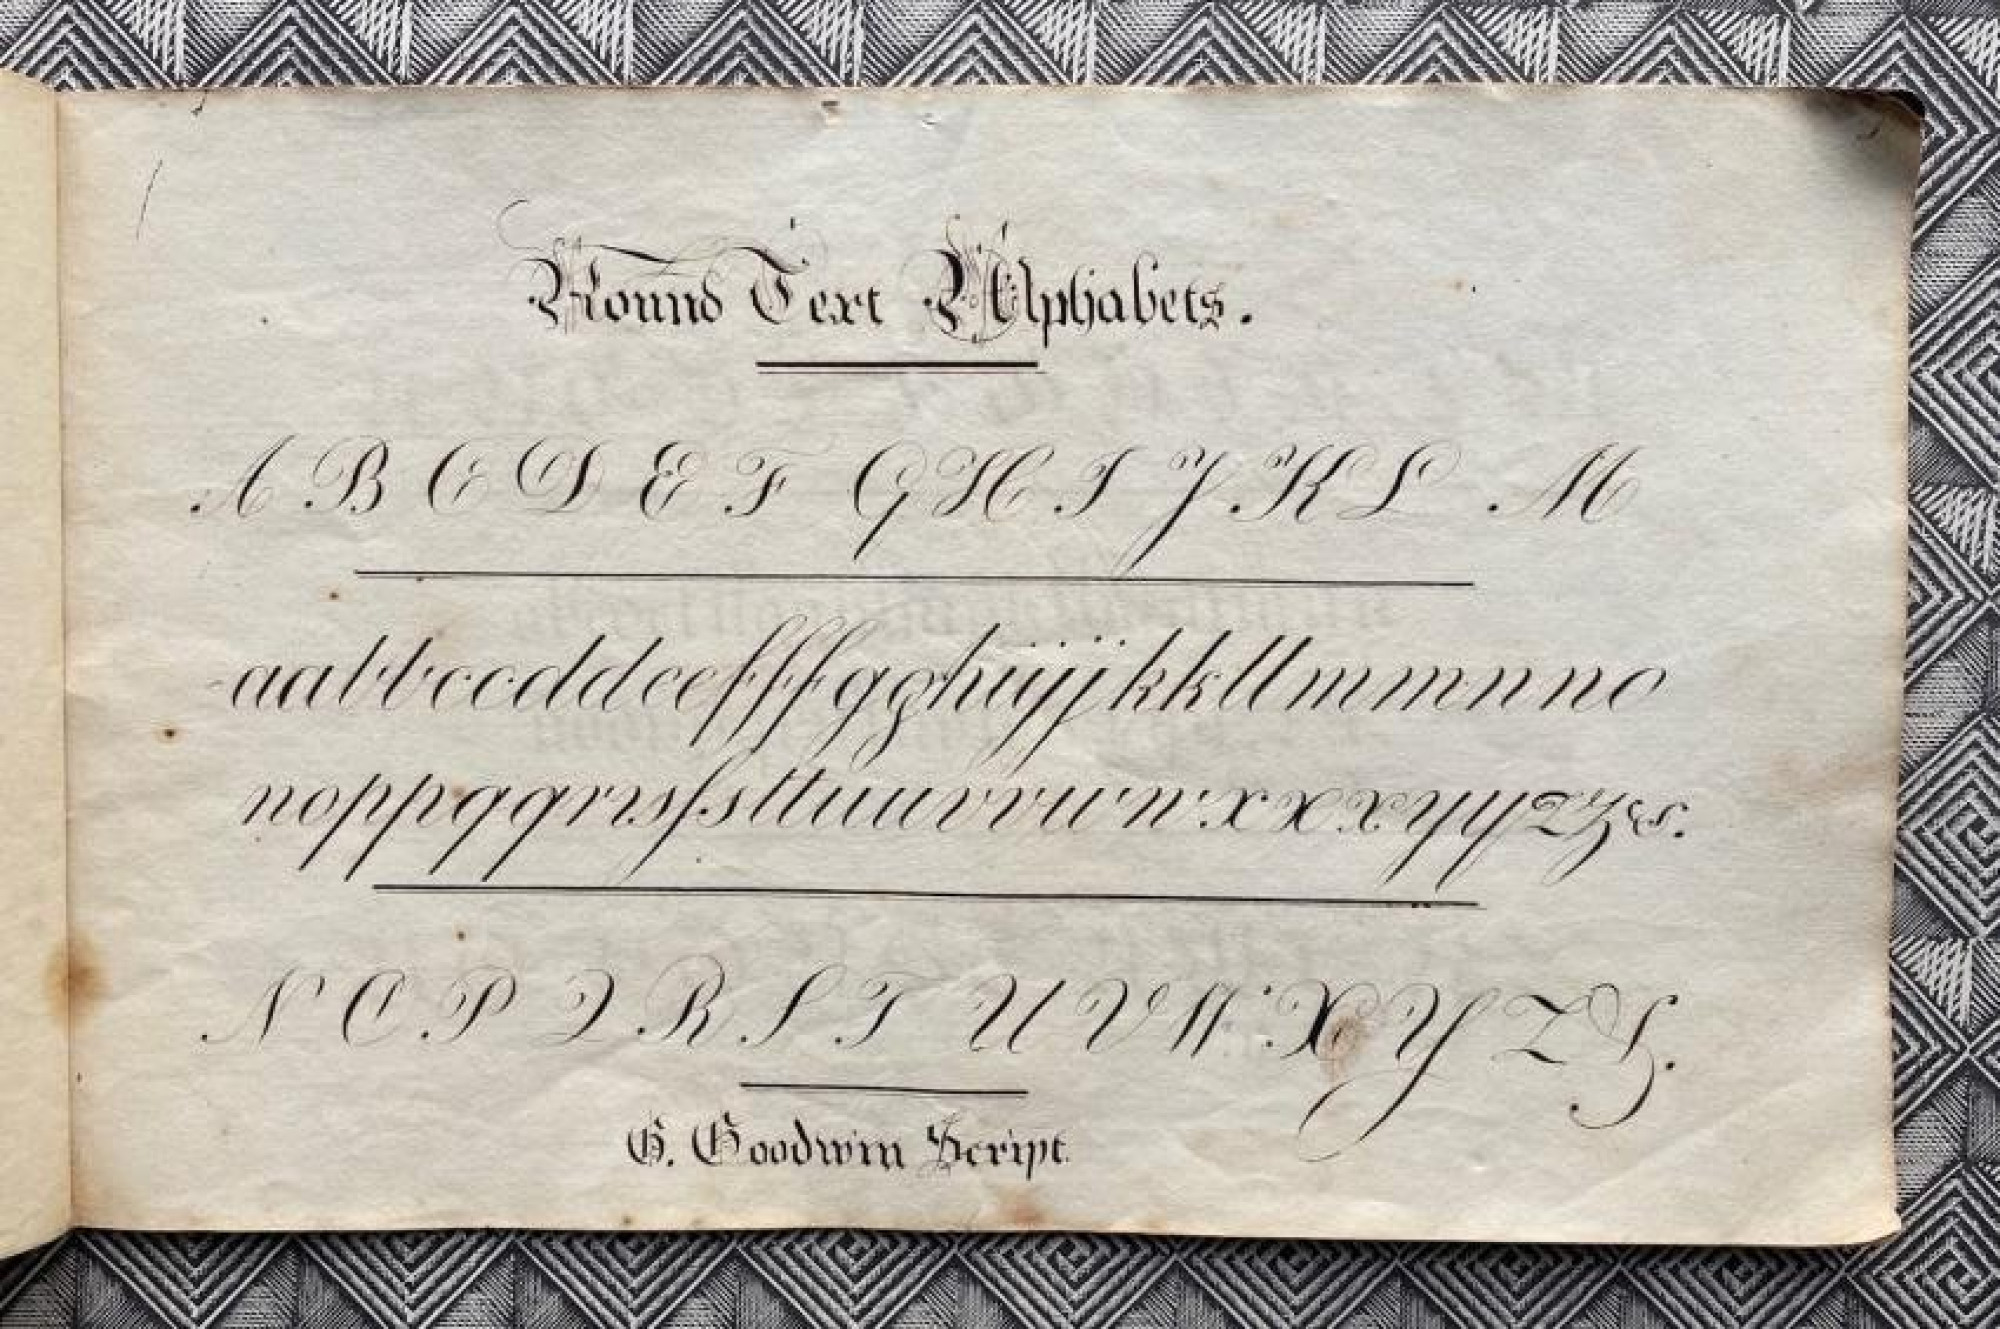 Round Text Alphabets.
A B C D E F G H I J K L M
aabbccddeefffgghiijjkkllmmnno
noppqqrrsſsttuuvvwwxxxyyzz&.
N O P Q R S T U V W X Y Z &.
G. Goodwin Script.